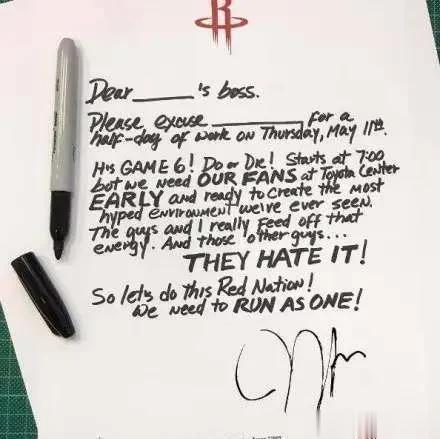 R
Dear ______'s boss.
Please excuse ____________ for a
half-day of work on Thursday, May 11th.
It's GAME 6! Do or Die! Starts at 7:00
but we need OUR FANS at Toyota Center
EARLY and ready to create the most
hyped environment we've ever seen.
The guys and I really feed off that
energy. And those other guys...
THEY HATE IT!
So let's do this Red Nation!
We need to RUN AS ONE!